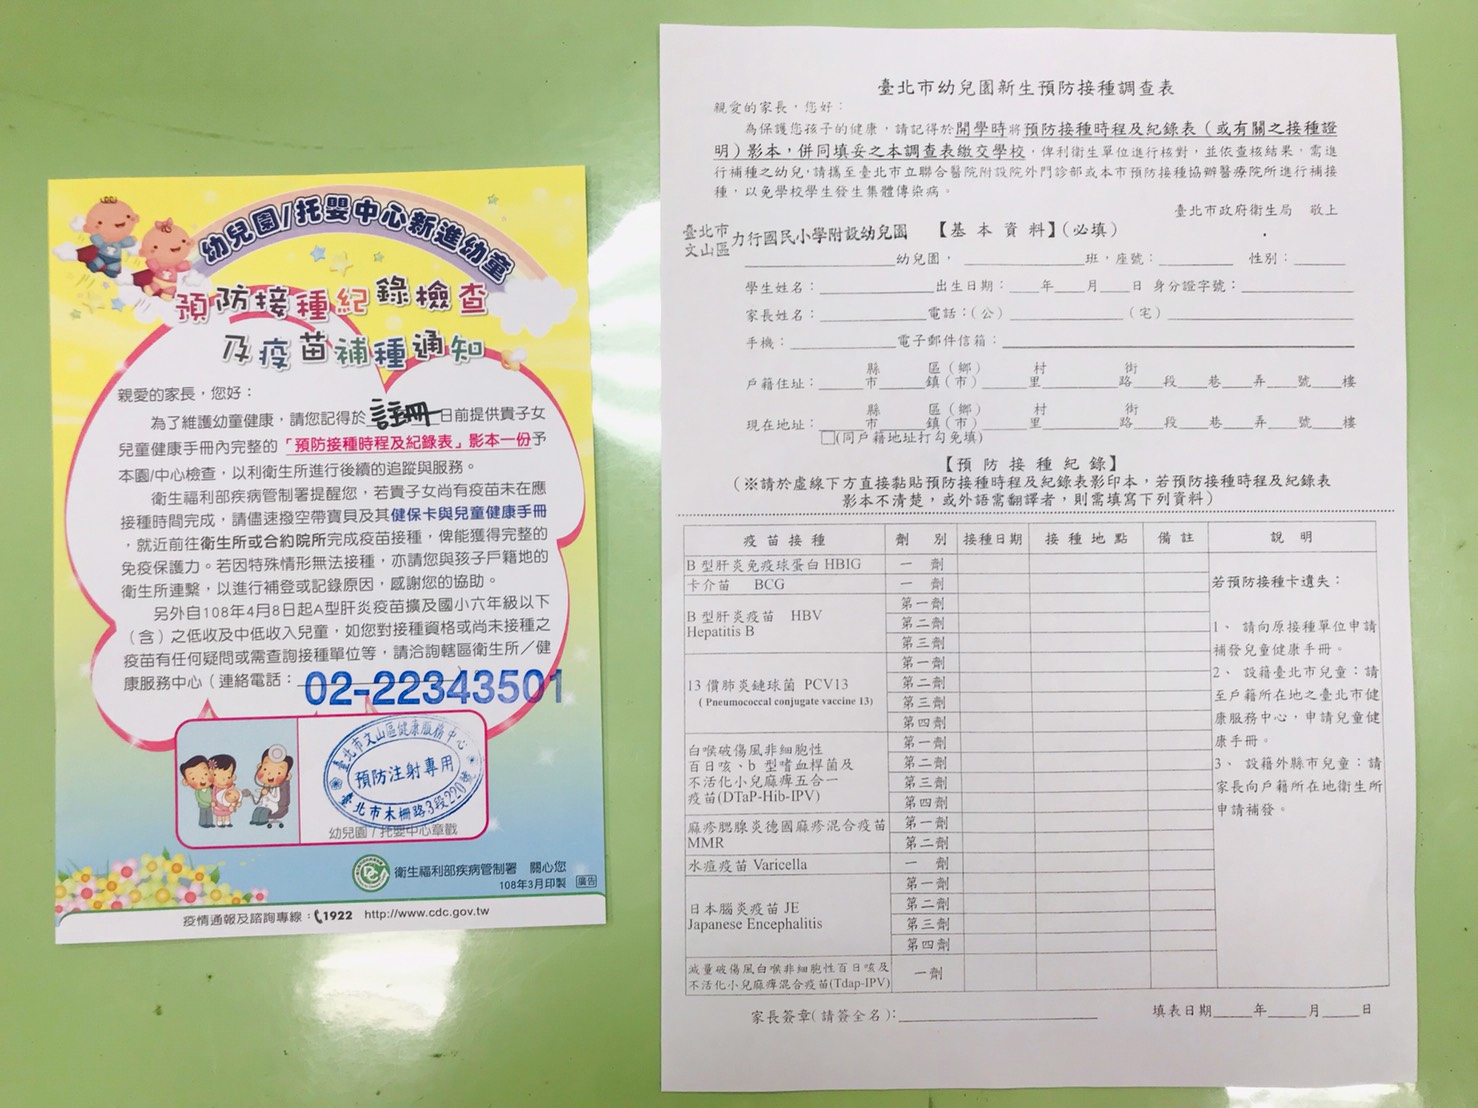 幼兒園/托嬰中心新進幼童
預防接種紀錄檢查
及疫苗補種通知
親愛的家長,您好:
為了維護幼童健康,請您記得於 註冊 日前提供貴子女
兒童健康手冊內完整的「預防接種時程及紀錄表」影本一份予
本園/中心檢查,以利衛生所進行後續的追蹤與服務。
衛生福利部疾病管制署提醒您,若貴子女尚有疫苗未在應
接種時間完成,請儘速撥空帶寶貝及其健保卡與兒童健康手冊
,就近前往衛生所或合約院所完成疫苗接種,俾能獲得完整的
免疫保護力。若因特殊情形無法接種,亦請您與孩子戶籍地的
衛生所連繫,以進行補登或記錄原因,感謝您的協助。
另外自108年4月8日起A型肝炎疫苗擴及國小六年級以下
(含)之低收及中低收入兒童,如您對接種資格或尚未接種之
疫苗有任何疑問或需查詢接種單位等,請洽詢轄區衛生所/健
康服務中心(連絡電話: 02-22343501
臺北市文山區健康服務中心
預防注射專用
臺北市木柵路3段220號
幼兒園/托嬰中心章戳
衛生福利部疾病管制署 關心您
108年3月印製 廣告
疫情通報及諮詢專線:1922 http://www.cdc.gov.tw
臺北市幼兒園新生預防接種調查表
親愛的家長,您好:
為保護您孩子的健康,請記得於開學時將預防接種時程及紀錄表(或有關之接種證
明)影本,併同填妥之本調查表繳交學校,俾利衛生單位進行核對,並依查核結果,需進
行補種之幼兒,請攜至臺北市立聯合醫院附設院外門診部或本市預防接種協辦醫療院所進行補接
種,以免學校學生發生集體傳染病。
臺北市政府衛生局 敬上
臺北市文山區力行國民小學附設幼兒園 【基本資料】(必填)
幼兒園, 班,座號: 性別:
學生姓名: 出生日期: 年 月 日 身分證字號:
家長姓名: 電話:(公) (宅)
手機: 電子郵件信箱:
縣 區(鄉) 村 街
戶籍住址: 市 鎮(市) 里 路 段 巷 弄 號 樓
縣 區(鄉) 村 街
現在地址: 市 鎮(市) 里 路 段 巷 弄 號 樓
□(同戶籍地址打勾免填)
【預防接種紀錄】
(※請於虛線下方直接黏貼預防接種時程及紀錄表影印本,若預防接種時程及紀錄表
影本不清楚,或外語需翻譯者,則需填寫下列資料)
疫苗接種 劑別 接種日期 接種地點 備註 說明
B型肝炎免疫球蛋白HBIG 一劑
卡介苗 BCG 一劑
B型肝炎疫苗 HBV
Hepatitis B
第一劑
第二劑
第三劑
13價肺炎鏈球菌 PCV13
( Pneumococcal conjugate vaccine 13)
第一劑
第二劑
第三劑
第四劑
白喉破傷風非細胞性
百日咳、b型嗜血桿菌及
不活化小兒麻痺五合一
疫苗(DTaP-Hib-IPV)
第一劑
第二劑
第三劑
第四劑
麻疹腮腺炎德國麻疹混合疫苗
MMR
第一劑
第二劑
水痘疫苗 Varicella 一劑
日本腦炎疫苗 JE
Japanese Encephalitis
第一劑
第二劑
第三劑
第四劑
減量破傷風白喉非細胞性百日咳及
不活化小兒麻痺混合疫苗(Tdap-IPV)
一劑
若預防接種卡遺失:
1、 請向原接種單位申請
補發兒童健康手冊。
2、 設籍臺北市兒童:請
至戶籍所在地之臺北市健
康服務中心,申請兒童健
康手冊。
3、 設籍外縣市兒童:請
家長向戶籍所在地衛生所
申請補發。
家長簽章(請簽全名): 填表日期 年 月 日